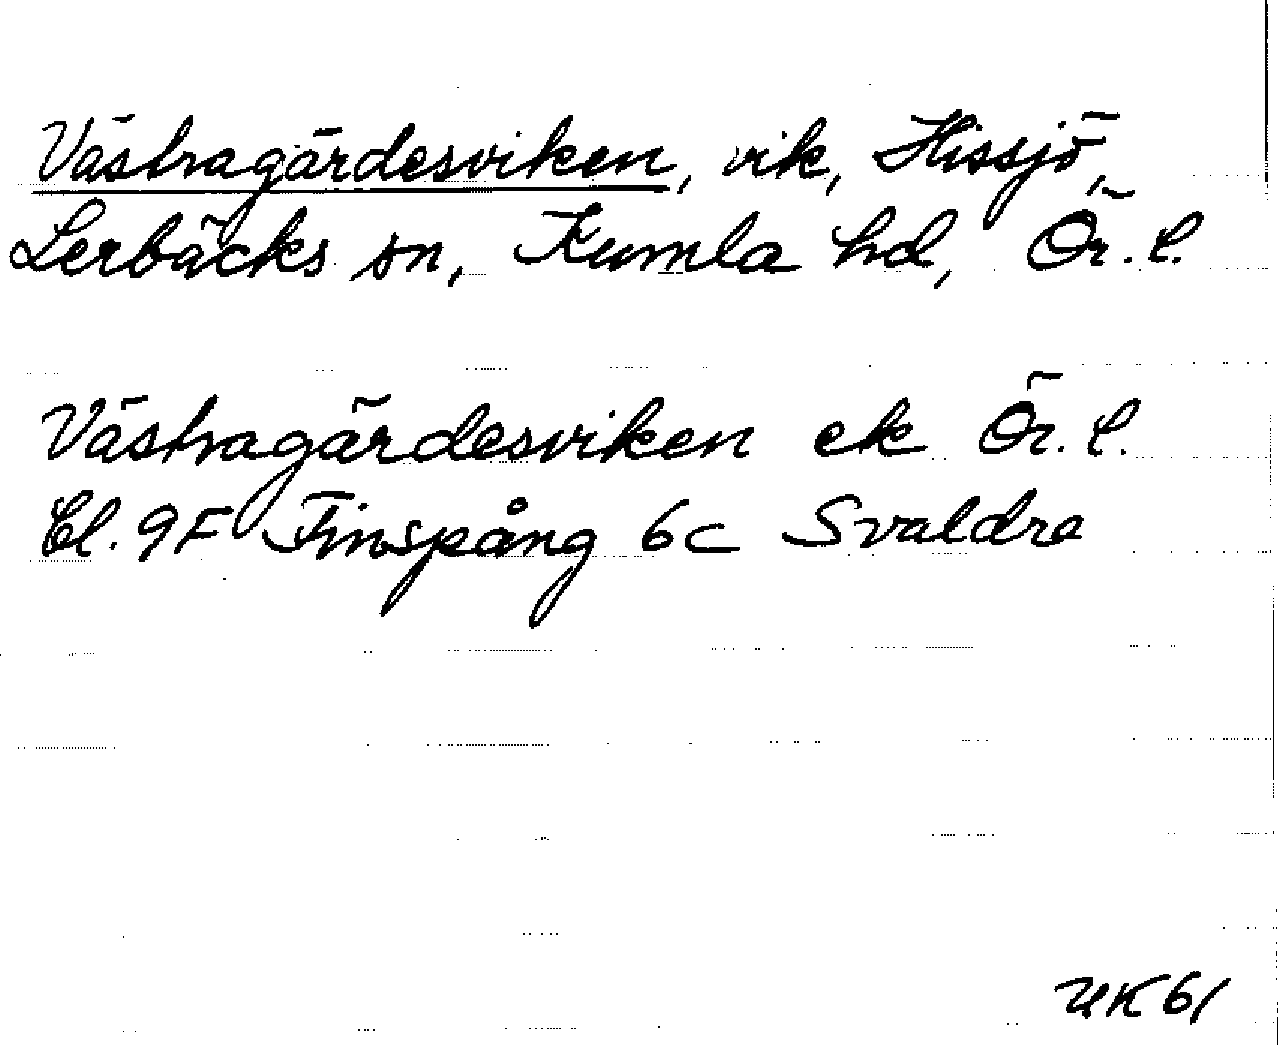 Västragärdesviken, vik, Hissjö,
Lerbäcks sn, Kumla hd, Ör. l.
Västragärdesviken ek Ör. l.
Bl. 9F Finspång 6c Svaldre
UK 61